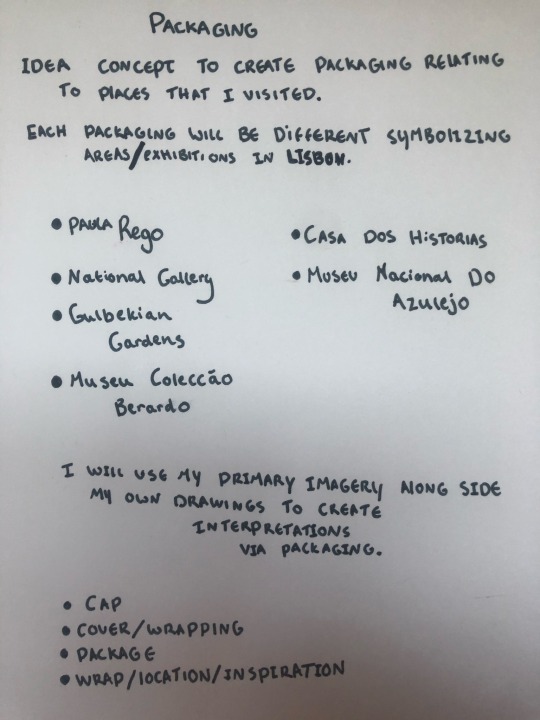 PACKAGING
IDEA CONCEPT TO CREATE PACKAGING RELATING
TO PLACES THAT I VISITED.
EACH PACKAGING WILL BE DIFFERENT SYMBOLIZING
AREAS/EXHIBITIONS IN LISBON.
• PAULA Rego
• National Gallery
• Gulbekian
Gardens
• Museu Colecção
Berardo
• CASA DOS HISTORIAS
• Museu Nacional Do
Azulejo
I WILL USE MY PRIMARY IMAGERY ALONG SIDE
MY OWN DRAWINGS TO CREATE
INTERPRETATIONS
VIA PACKAGING.
• CAP
• COVER/WRAPPING
• PACKAGE
• WRAP/LOCATION/INSPIRATION